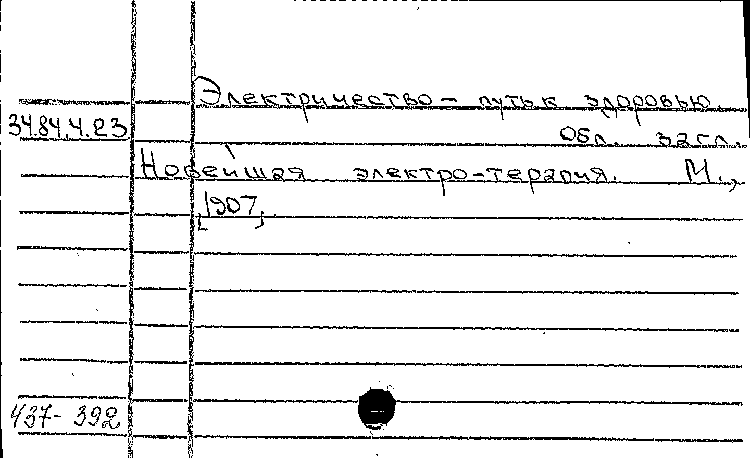 Электричество - путь к здоровью.
34.84.4.23 Обл. загл.
Новейшая электро-терапия. М.,
[1907]
437-392